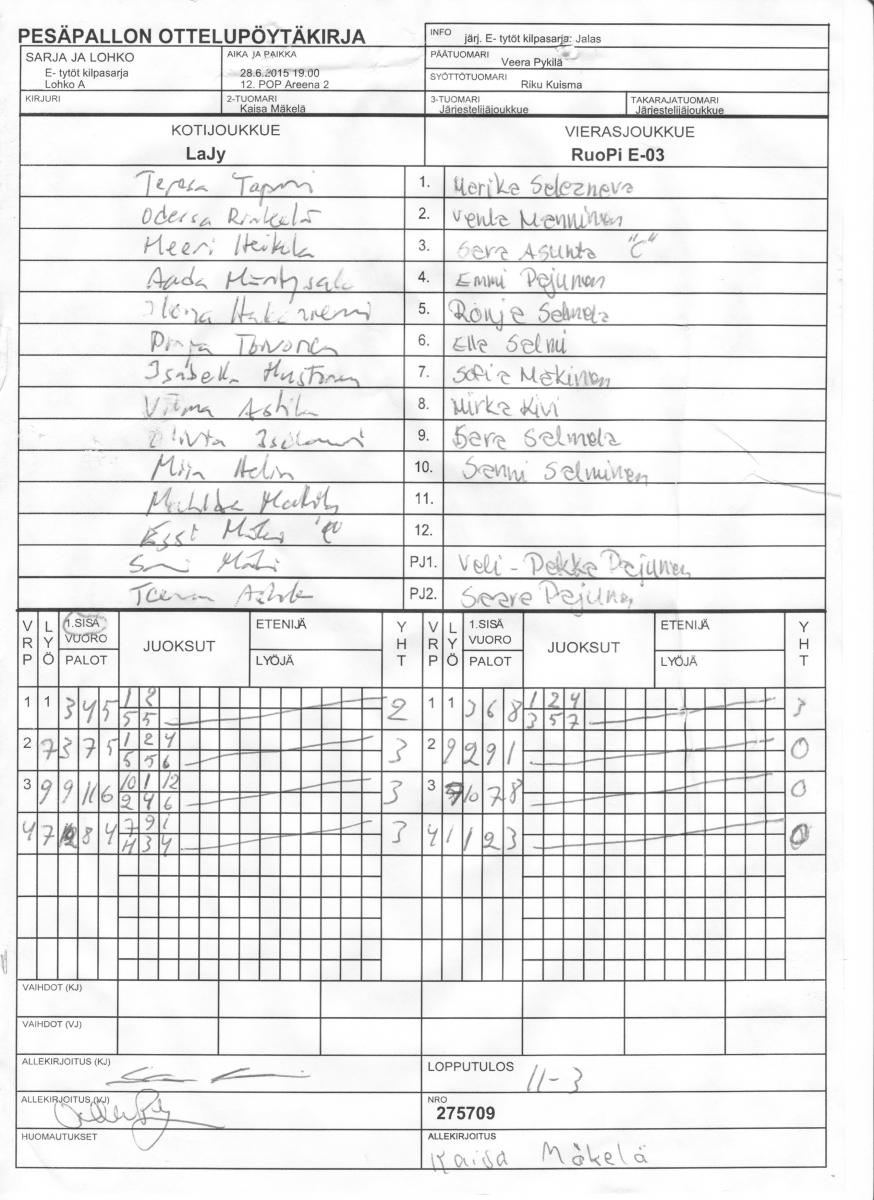 PESÄPALLON OTTELUPÖYTÄKIRJA
INFO järj. E- tytöt kilpasarja: Jalas
SARJA JA LOHKO
E- tytöt kilpasarja
Lohko A
AIKA JA PAIKKA
28.6.2015 19.00
12. POP Areena 2
PÄÄTUOMARI
Veera Pykilä
SYÖTTÖTUOMARI
Riku Kuisma
KIRJURI
2-TUOMARI
Kaisa Mäkelä
3-TUOMARI
Järjestelijäjoukkue
TAKARAJATUOMARI
Järjestelijäjoukkue
KOTIJOUKKUE VIERASJOUKKUE
LaJy RuoPi E-03
Teresa 1. Merika Selezneva
2. Venla Manninen
Meeri Heikkilä 3. Sara Asunta "C"
Aada Mäntysalo 4. Emmi Pajunen
5. Ronja Salmela
Pinja Toivonen 6. Ella Salmi
Isabella Mustonen 7. Sofia Mäkinen
Vilma 8. Mirka Kivi
9. Sara Salmela
Miia Helin 10. Sanni Salminen
11.
12.
PJ1. Veli-Pekka Pajunen
PJ2. Saara Pajunen
VRP LYÖ 1.SISÄ VUORO PALOT JUOKSUT ETENIJÄ LYÖJÄ YHT VRP LYÖ 1.SISÄ VUORO PALOT JUOKSUT ETENIJÄ LYÖJÄ YHT
1 1 3 4 5 1 2 2 1 1 3 6 8 1 2 4 3
5 5 3 5 7
2 7 3 7 5 1 2 4 3 2 9 2 9 1 0
5 5 6
3 9 9 11 6 10 1 12 3 3 10 7 8 0
2 4 6
4 7 8 4 7 9 1 3 4 1 1 2 3 0
11 3 4
VAIHDOT (KJ)
VAIHDOT (VJ)
ALLEKIRJOITUS (KJ)
LOPPUTULOS 11-3
ALLEKIRJOITUS (VJ)
NRO
275709
HUOMAUTUKSET
ALLEKIRJOITUS
Kaisa Mäkelä